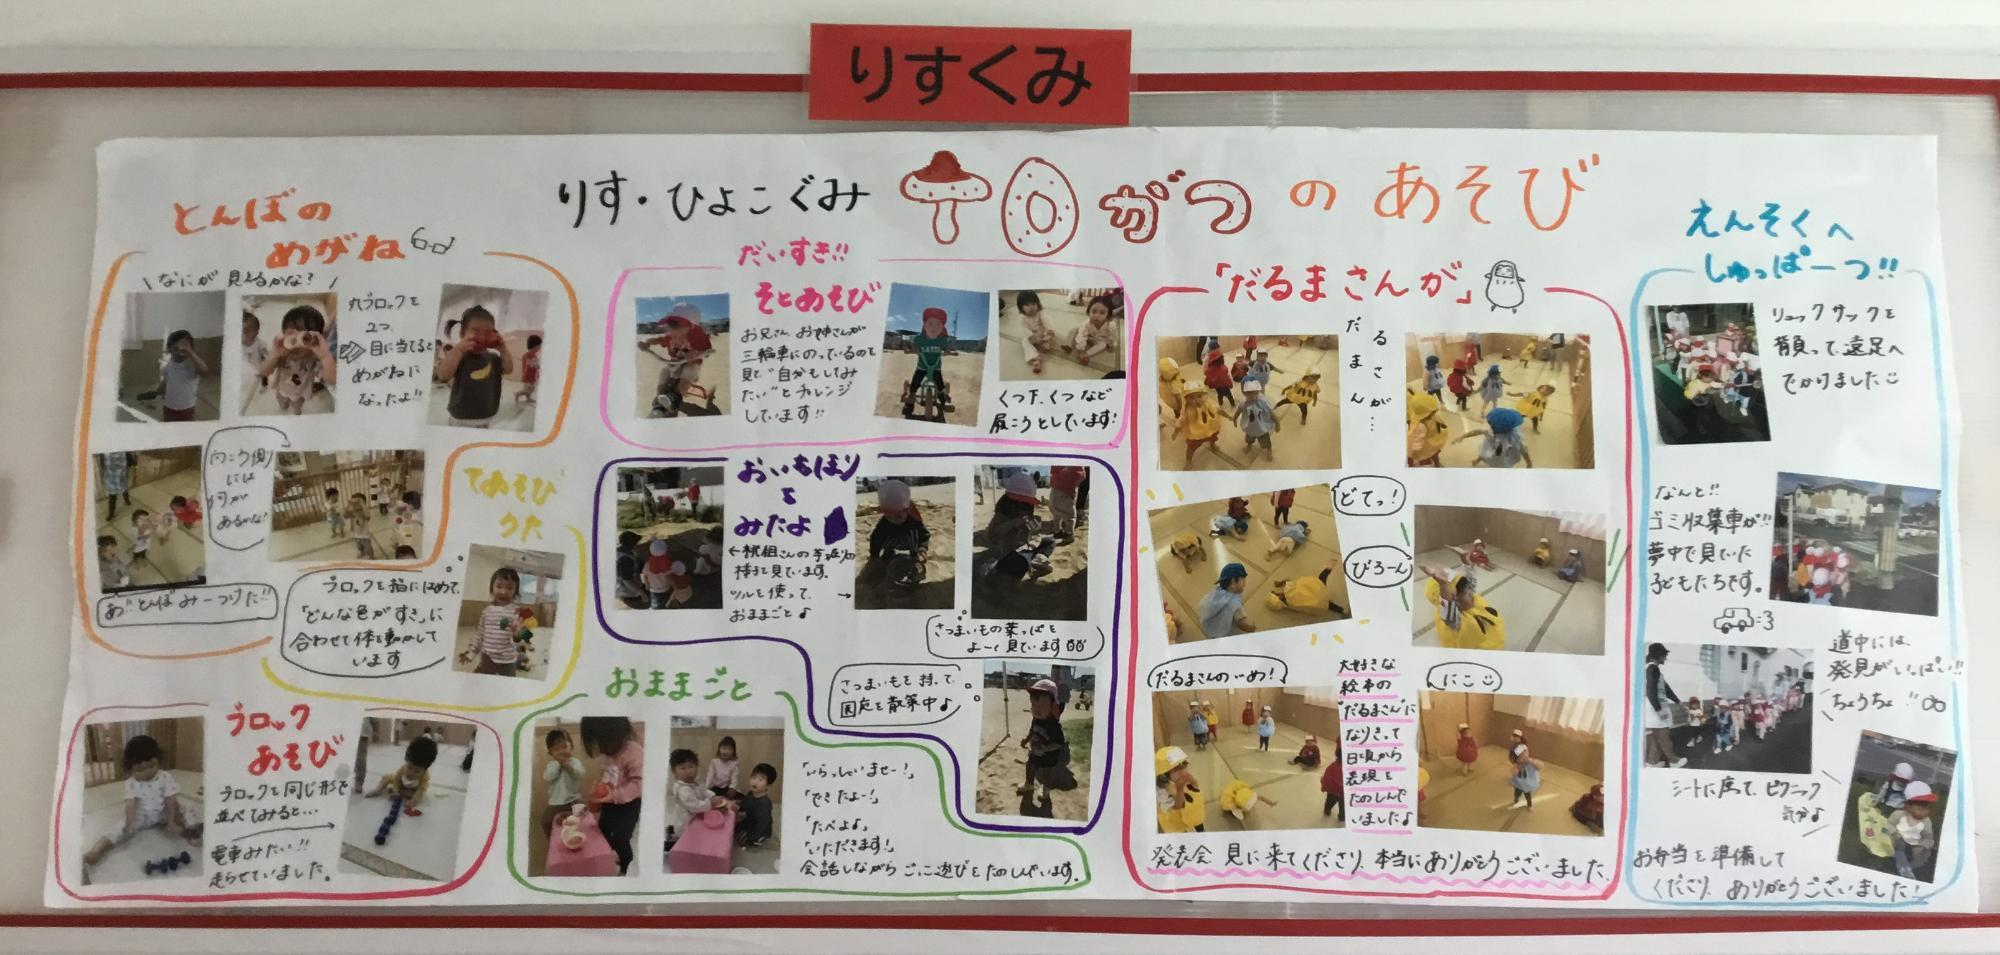 りすくみ
りす・ひよこぐみ 十月がつのあそび
とんぼの
めがね
なにが見えるかな?
丸ブロックを
2つ
目に当てると
めがねに
なったよ!!
向こう側
には
何が
あるかな?
あ!!とんぼみーつけた!!
てあそび
うた
ブロックを指にはめて、
「どんな色がすき」に
合わせて体を動かして
います
ブロック
あそび
ブロックを同じ形で
並べてみると…
電車みたい!!
走らせていました。
だいすき!!
そとあそび
お兄さん、お姉さんが
三輪車にのっているのを
見て"自分もしてみ
たい"とチャレンジ
しています!!
くつ下、くつなど
履こうとしています!
おいもほり
を
みたよ
←桃組さんの芋掘りの
様子を見ています。
ツルを使って、
おままごと♪
さつまいもの葉っぱを
よーく見ています
さつまいもを持って
園庭を散策中♪
おままごと
「いらっしゃいませー!」
「できたよー!」
「たべよ♪」
「いただきます!」
会話しながらごっこ遊びをたのしんでいます。
「だるまさんが」
だるまさんが…
どてっ!
びろーん
だるまさんの…め!
にこ
大好きな
絵本の
"だるまさん"に
なりきって
日頃から
表現を
たのしんで
いました♪
発表会 見に来てくださり、本当にありがとうございました。
えんそくへ
しゅっぱーつ!!
リュックサックを
背負って、遠足へ
でかけました
なんと!!
ゴミ収集車が!!
夢中で見ていた
子どもたちです。
道中には、
発見がいっぱい!!
ちょうちょ!!
シートに座って、ピクニック
気分♪
お弁当を準備して
くださり、ありがとうございました!